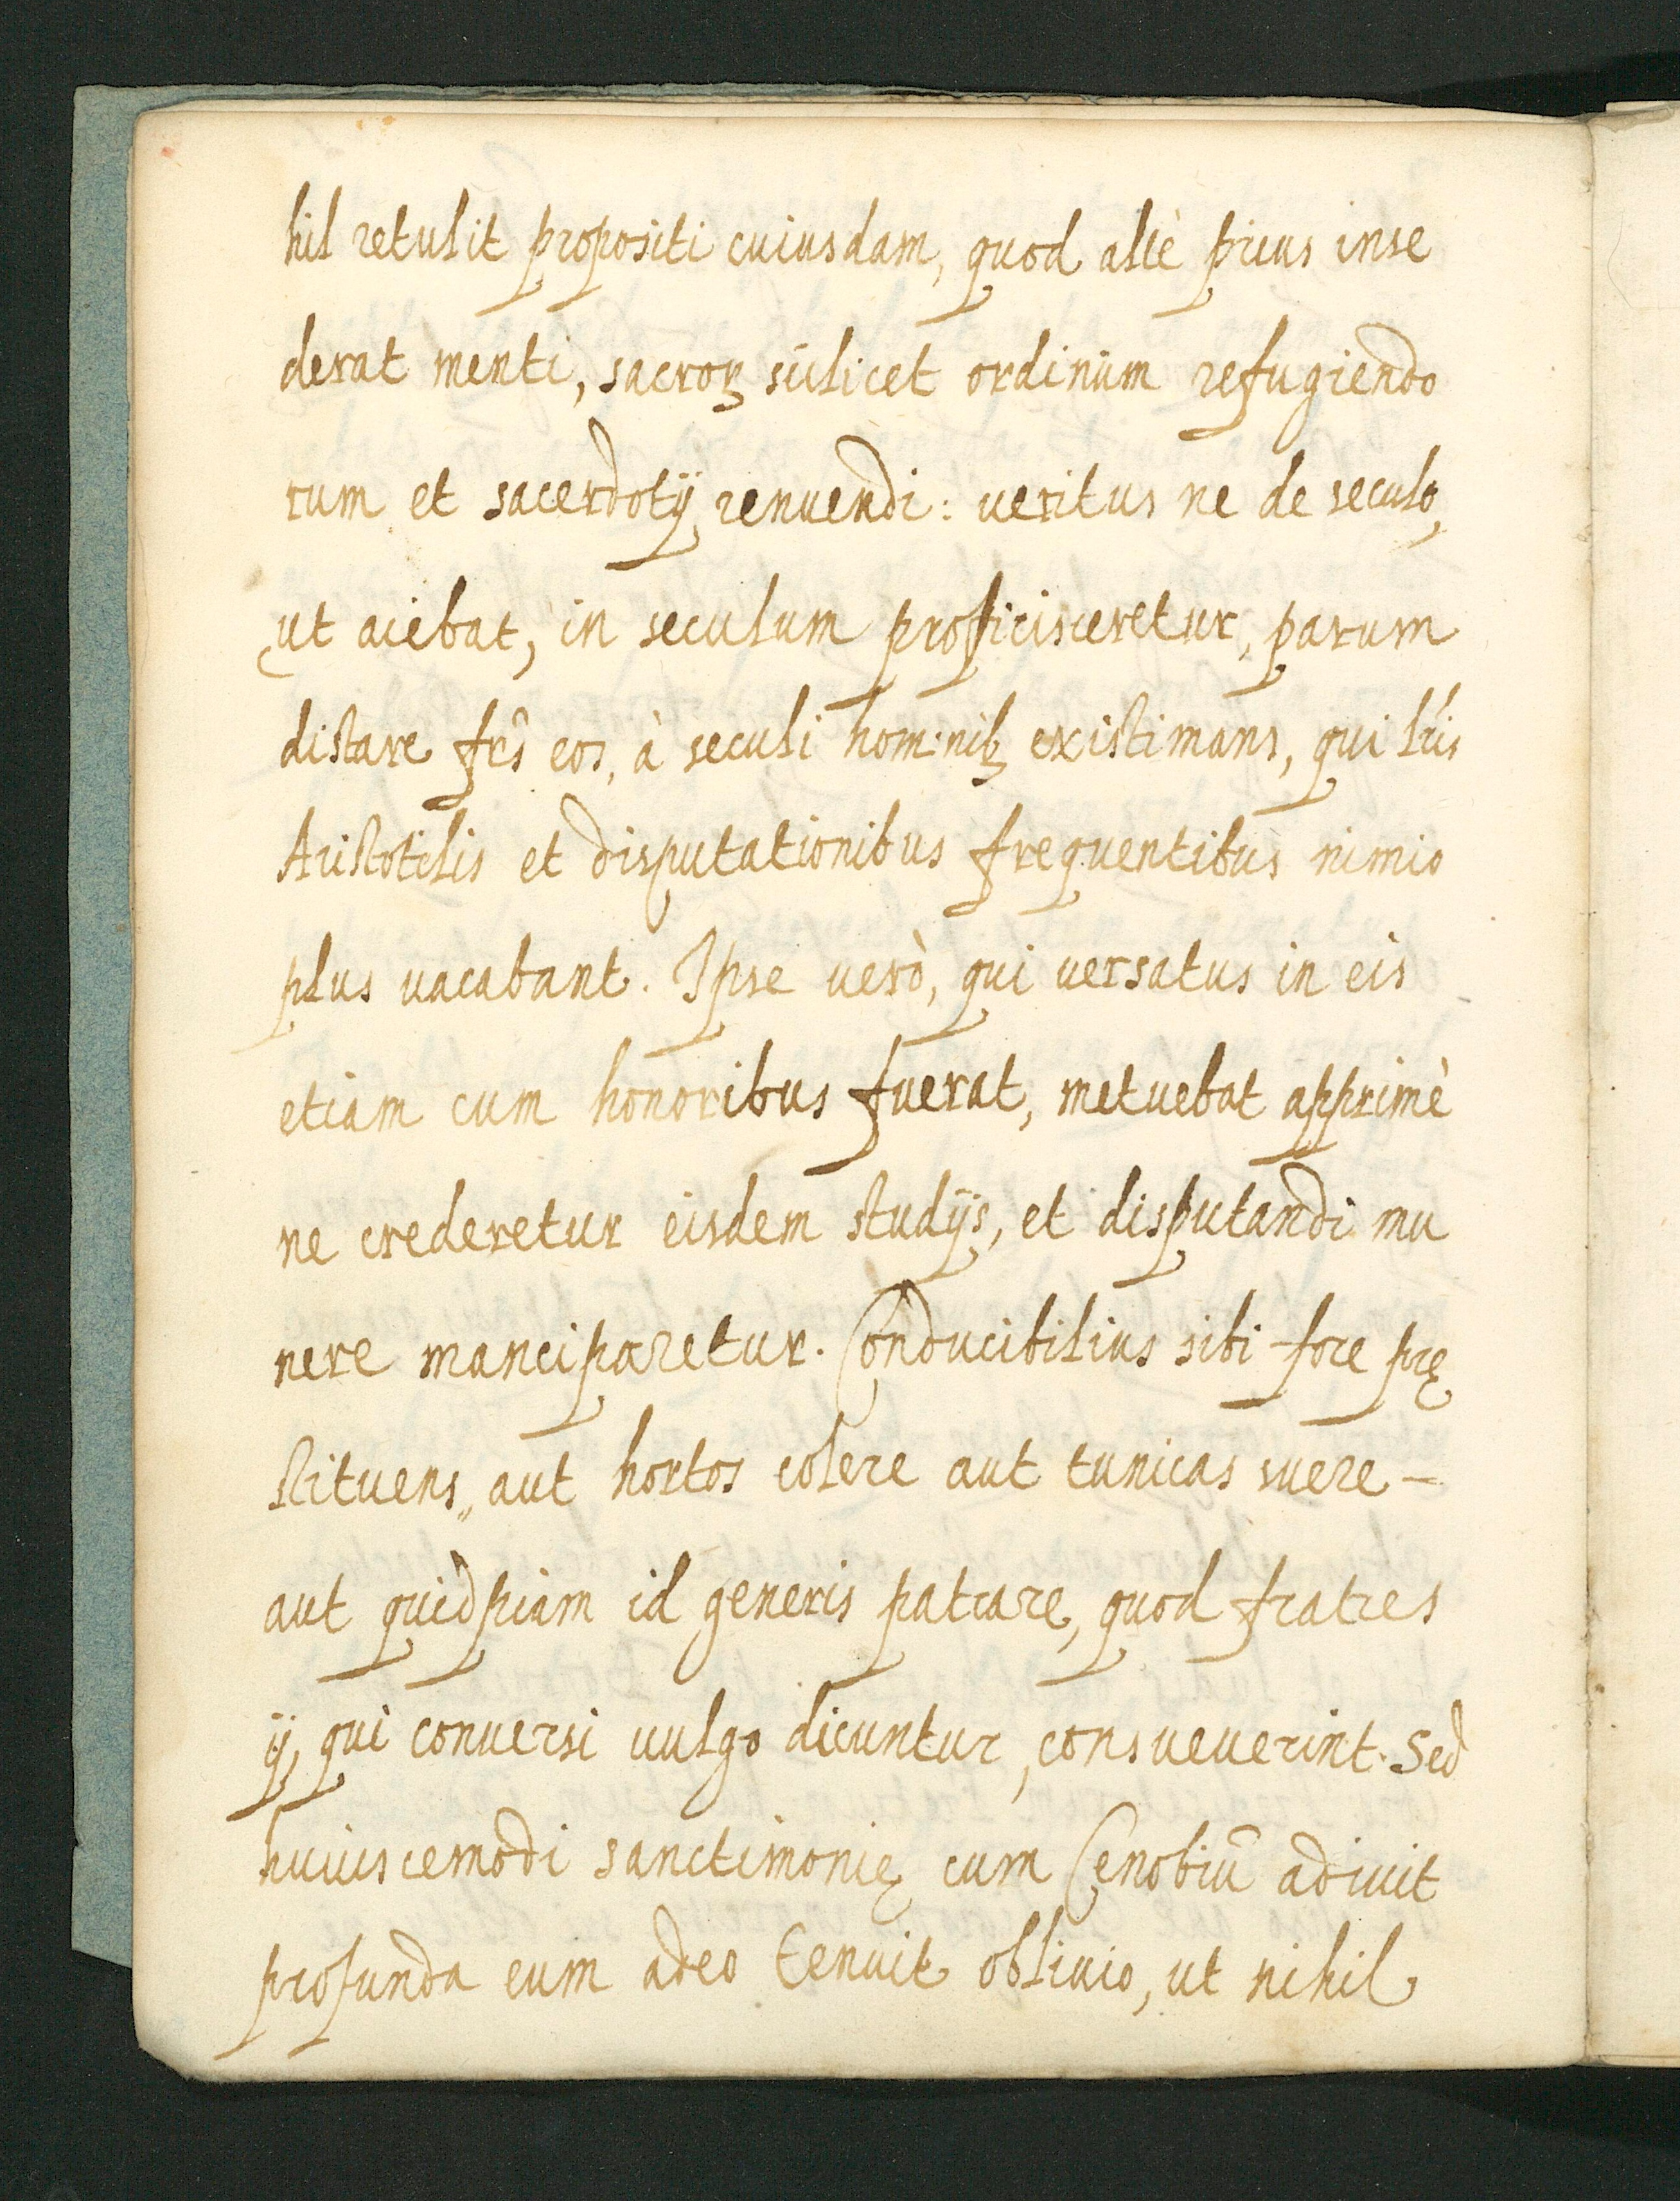 hil retulit propositi cuiusdam, quod altè prius inse
derat menti, sacroꝝ scilicet ordinum refugiendo
rum et sacerdotij renuendi: ueritus ne de seculo,
ut aiebat, in seculum proficisceretur, parum
distare fr̃s eos, à seculi hominibꝫ existimans, qui lr̃is
Aristotelis et disputationibus frequentibus nimio
plus uacabant. Ipse uerò, qui uersatus in eis
etiam cum honoribus fuerat, metuebat apprimè
ne crederetur eisdem studijs, et disputandi mu
nere manciparetur. Conducibilius sibi fore prę
stituens,, aut hortos colere aut tunicas suere –
aut quidpiam id generis patrare, quod fratres
ij, qui conuersi uulgo dicuntur, consueuerint. Sed
huiuscemodi sanctimonię cum Cenobiũ adiuit
profunda eum adeo tenuit obliuio, ut nihil